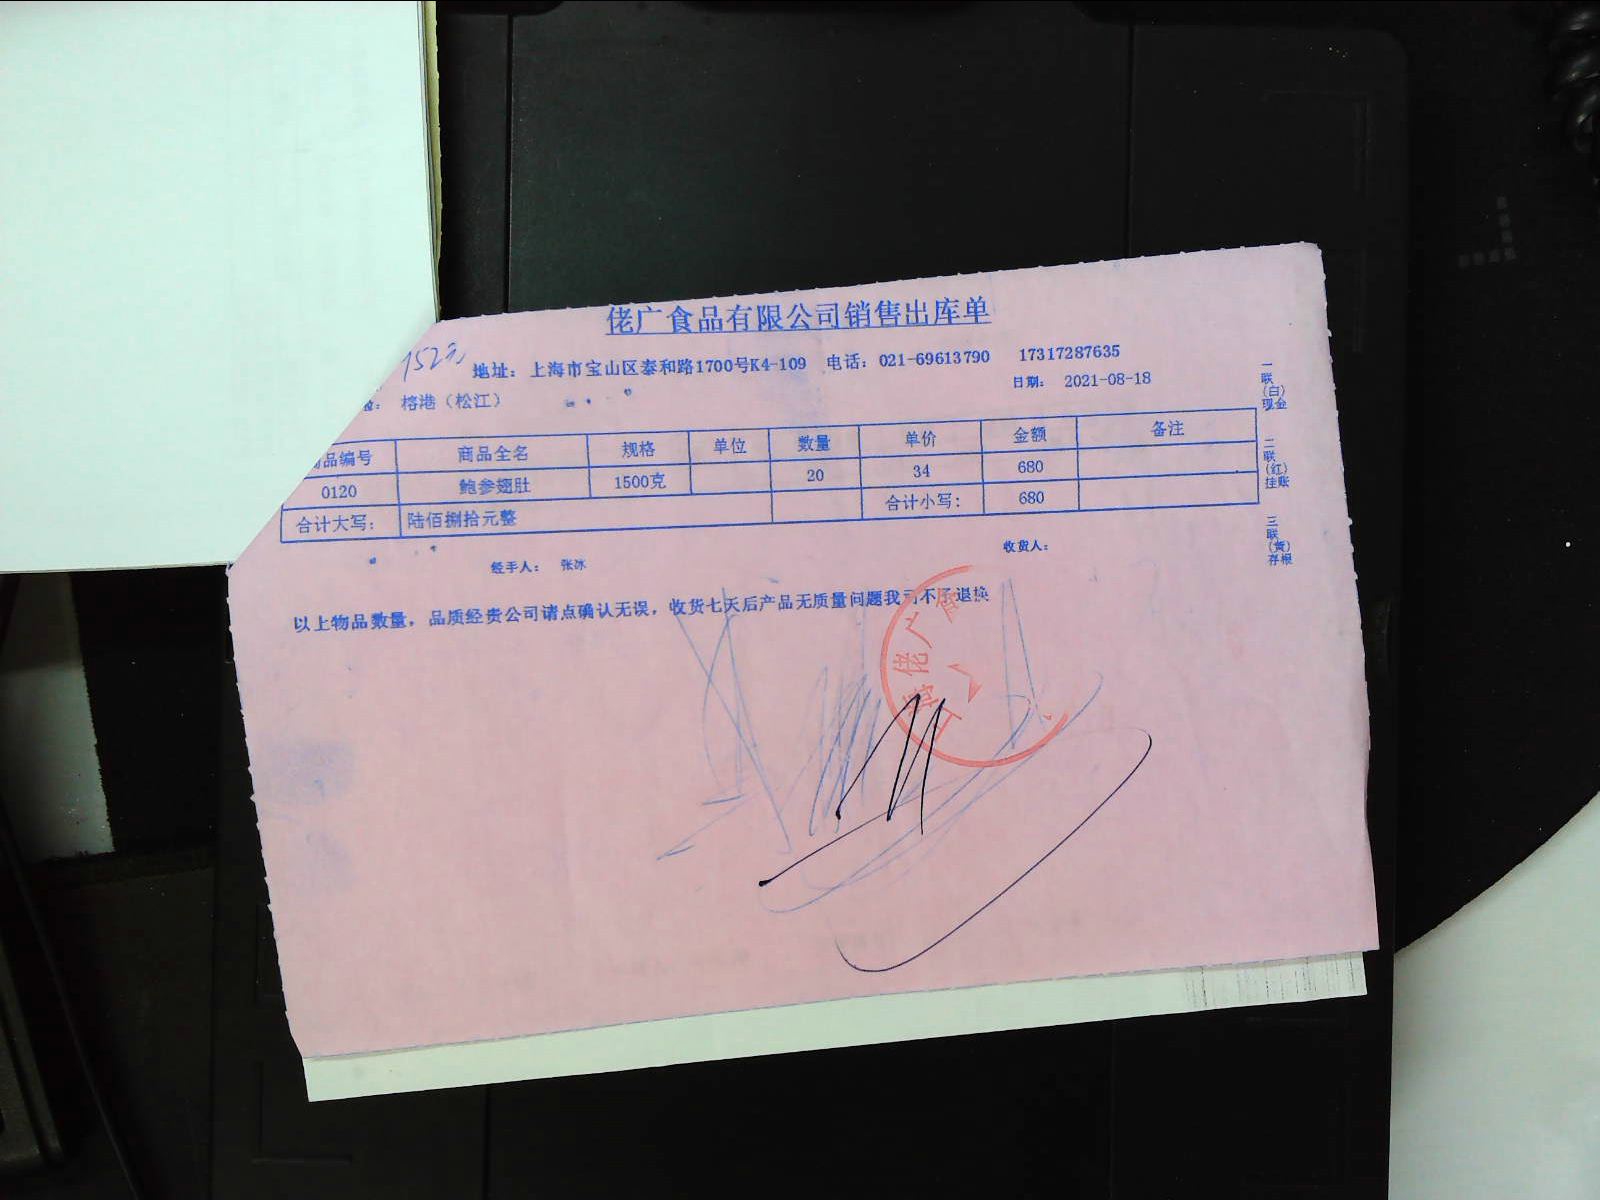 佬广食品有限公司销售出库单
地址：上海市宝山区泰和路1700号K4-109 电话：021-69613790 17317287635
榕港（松江） 日期： 2021-08-18
品编号 商品全名 规格 单位 数量 单价 金额 备注
0120 鲍参翅肚 1500克 20 34 680
合计大写： 陆佰捌拾元整 合计小写： 680
经手人： 张冰 收货人：
以上物品数量，品质经贵公司请点确认无误，收货七天后产品无质量问题我司不予退换
一联（白）现金
二联（红）挂账
三联（黄）存根
上海佬广食